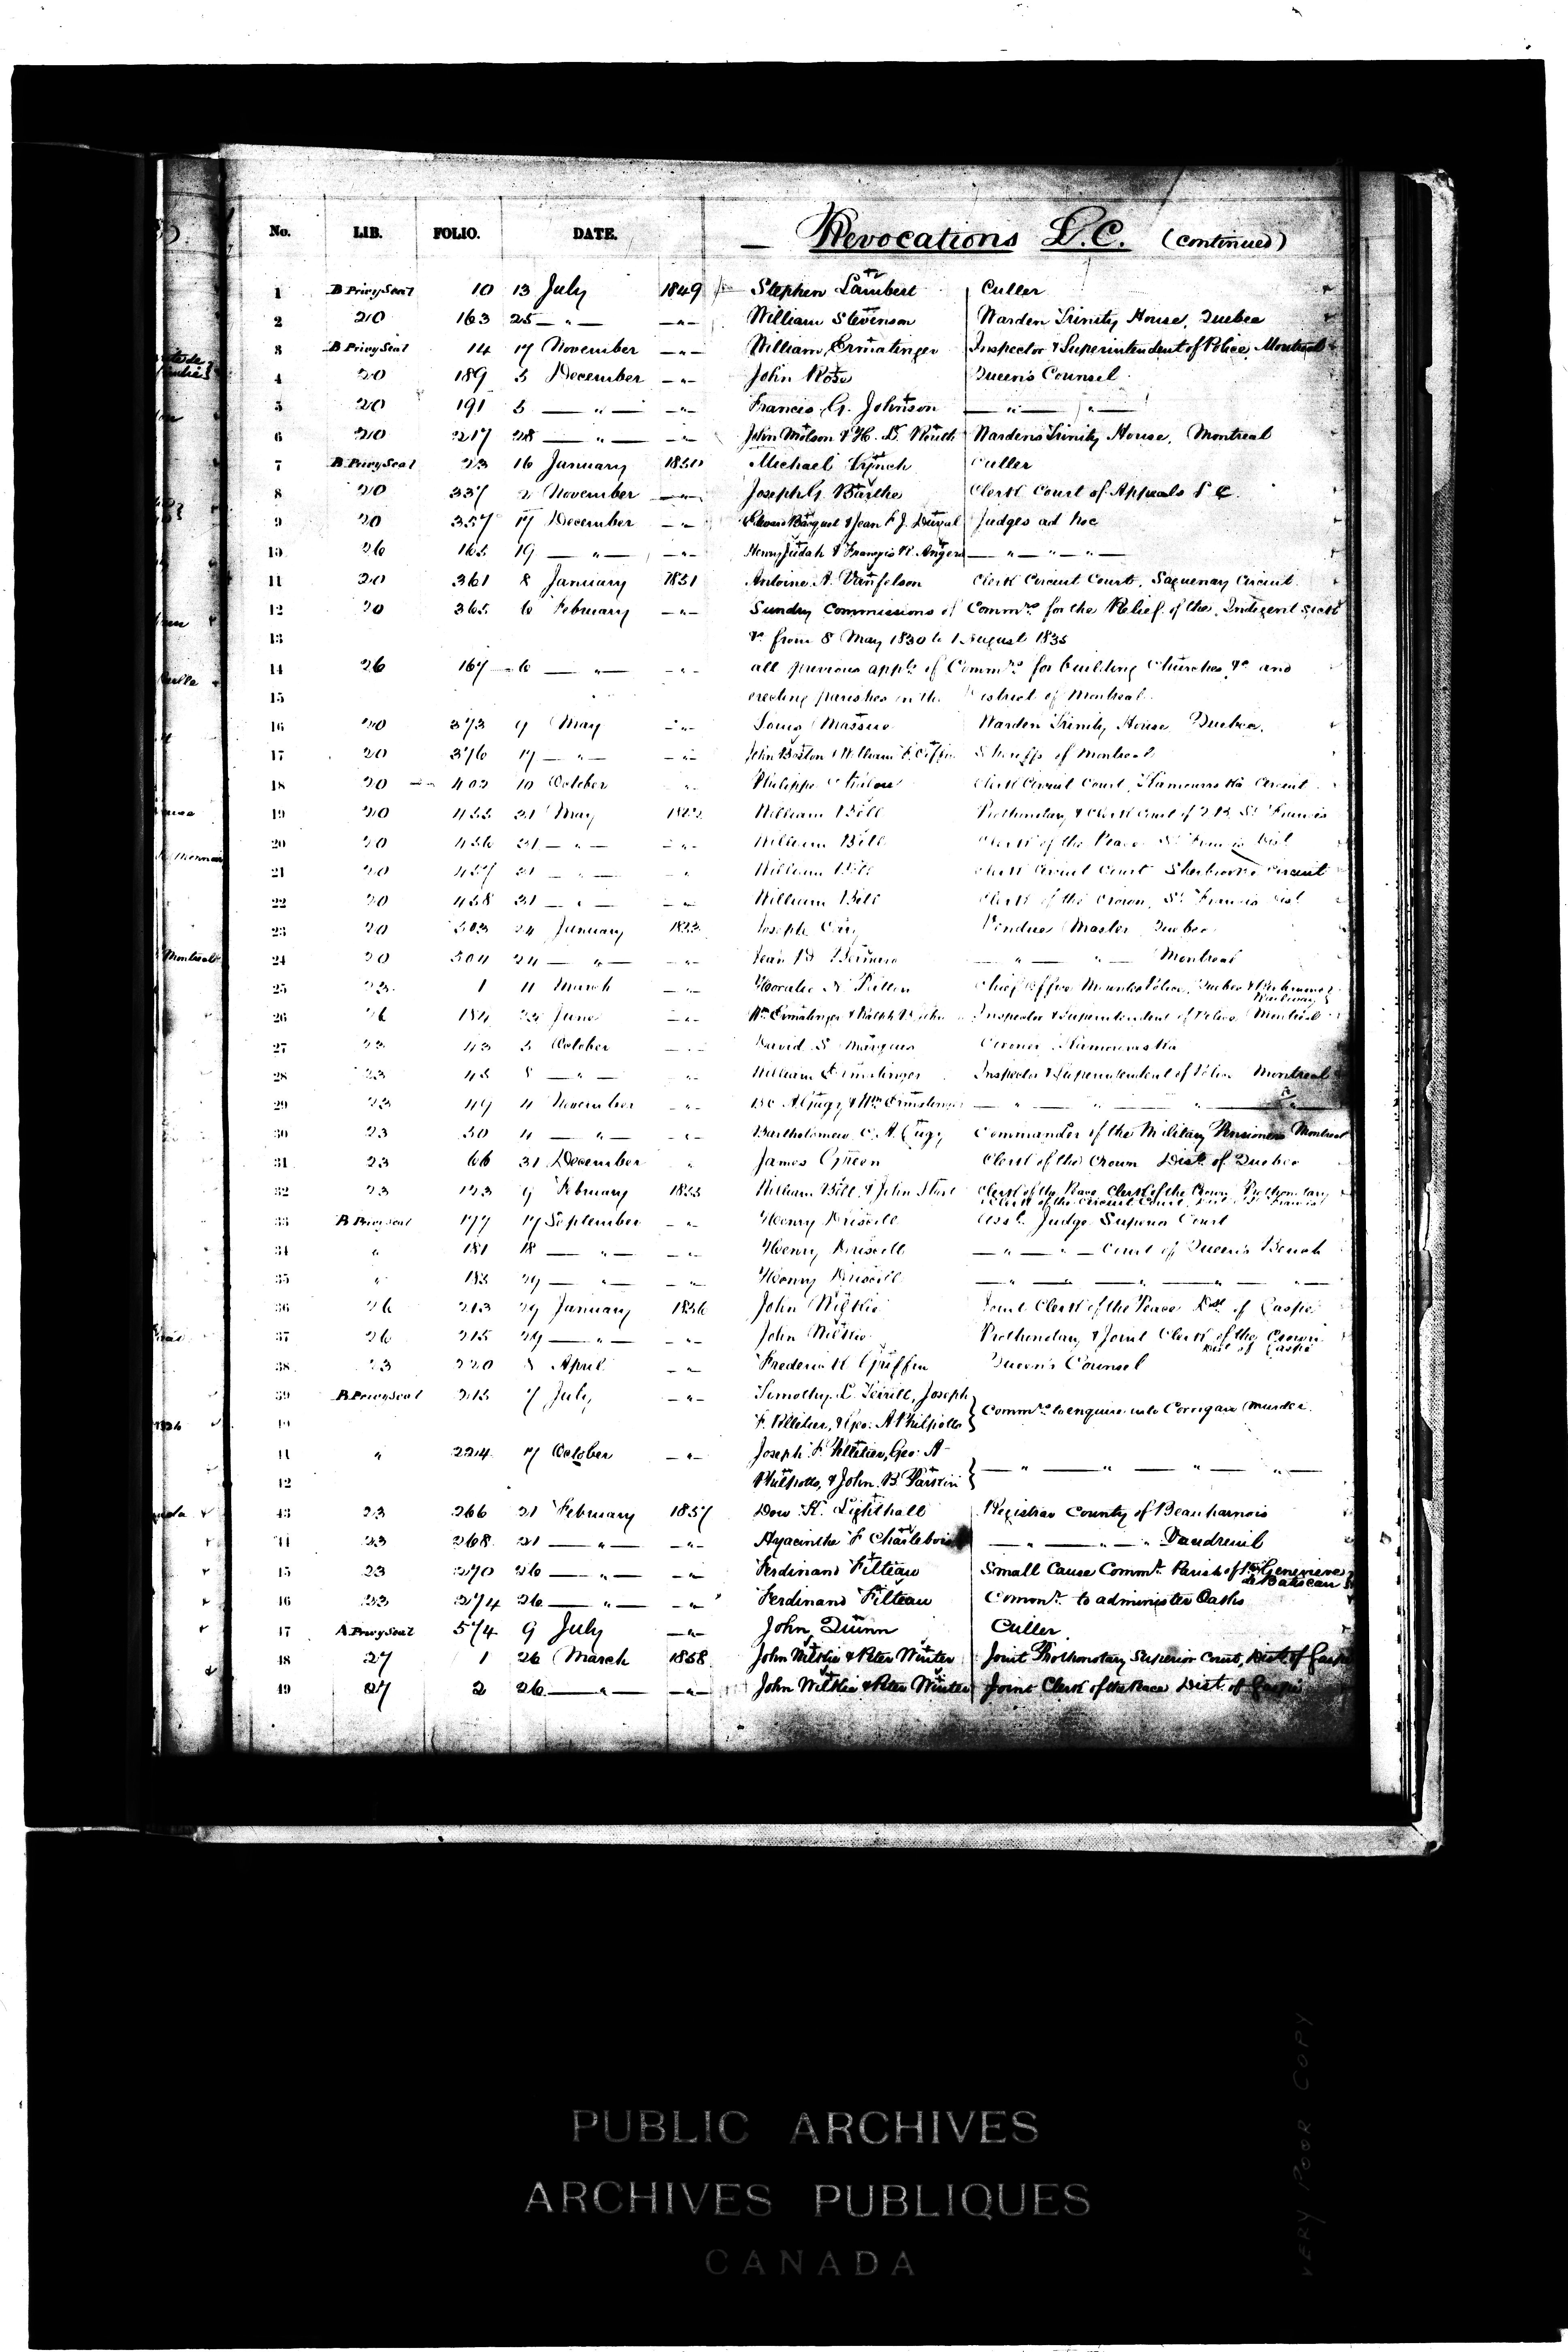 No. LIB. FOLIO. DATE. — Revocations L.C. (continued)
1 B Privy Seal 10 13 July 1849 Stephen Lambert Culler
2 20 163 25 — " — — " — William Stevenson Warden Trinity House, Quebec
3 B Privy Seal 14 17 November — " — William Ermatinger Inspector & Superintendent of Police, Montreal
4 20 189 5 December — " — John Rose Queen's Counsel
5 20 191 5 — " — — " — Francis G. Johnson — " — " —
6 20 217 28 — " — — " — John Molson & H. L. Routh Wardens Trinity House, Montreal
7 B Privy Seal 23 16 January 1850 Michael Lynch Culler
8 20 337 2 November — " — Joseph G. Barthe Clerk Court of Appeals L C.
9 20 357 17 December — " — & Jean F. J. Duval Judges ad hoc
10 26 165 19 — " — — " — Henry Judah & François R. Angers — " — " — " —
11 20 361 8 January 1851 Antoine A. Vanfelson Clerk Circuit Court, Saguenay Circuit
12 20 365 6 February — " — Sundry Commissions of Commrs for the Relief of the Indigent Sick
13 &c from 8 May 1830 to 1 August 1835
14 26 167 6 — " — — " — all previous appts of Commrs for building Churches, &c and
15 erecting parishes in the District of Montreal
16 20 373 9 May — " — Louis Massue Warden Trinity House Quebec.
17 20 376 17 — " — — " — John Boston & William F. Coffin Sheriffs of Montreal
18 20 402 10 October " Philippe Clerk Circuit Court, Kamouraska Circuit
19 20 455 31 May William Bell Prothonotary & Clerk Court of Q B. St Francis
20 20 456 31 — " — — " — William Bell Clerk of the Peace St Francis Dist
21 20 457 31 — " — " William Bell Clerk Circuit Court Sherbrooke Circuit
22 20 458 31 — " — — " — William Bell Clerk of the Crown, St Francis Dist
23 20 503 24 January 1853 Joseph Cary Vendue Master Quebec
24 20 504 24 — " — — " — Jean Bt — " — " — Montreal
25 23 1 11 March — " — Horatio N. Chief Officer Mounted Police, Quebec & Richmond
Railway
26 26 184 June — " — Wm Ermatinger & Inspector & Superintendent of Police Montreal
27 23 43 5 October — " — David S Marquis Coroner Kamouraska
28 23 45 8 — " — " William Ermatinger Inspector & Superintendent of Police Montreal
29 23 49 4 November " Bw. A Gugy & Wm Ermatinger — " — " — " — " —
30 23 50 4 — " — — " — Bartholomew C. A. Gugy Commander of the Military Pensioners Montreal
31 23 66 31 December " James Green Clerk of the Crown Dist. of Quebec
32 23 123 9 February 1855 William Bell & John Short Clerk of the Peace, Clerk of the Crown Prothonotary
Clerk of the Circuit Court, Dist. St Francis
33 B Privy Seal 177 17 September — " — Henry Driscoll Asst. Judge Superior Court
34 " 181 18 — " — — " — Henry Driscoll — " — " — Court of Queen's Bench
35 " 183 29 — " — — " — Henry Driscoll — " — " — " — " —
36 26 213 29 January 1856 John Wilkie Joint Clerk of the Peace Dist. of Gaspé
37 26 215 29 — " — — " — John Wilkie Prothonotary & Joint Clerk of the Crown
Dist of Gaspé
38 23 220 8 April — " — Frederick Griffin Queen's Counsel
39 B Privy Seal 215 7 July — " — Timothy L. Terrill, Joseph
40 F. Pelletier, & Geo: A Philpotts } Commrs to enquire into Corrigan Murder.
41 " 224 17 October — " — Joseph F. Pelletier, Geo: A
42 Philpotts, & John B. Parkin } — " — " — " — " —
43 23 266 21 February 1857 Dow K. Lighthall Registrar County of Beauharnois
44 23 268 21 — " — — " — Hyacinthe F Charlebois — " — " — " Vaudreuil
45 23 270 26 — " — — " — Ferdinand Filteau Small Cause Commr. Parish of Ste Genevieve
de Batiscan
46 23 274 26 — " — — " — Ferdinand Filteau Commr. to administer Oaths
47 A Privy Seal 574 9 July — " — John Quinn Culler
48 27 1 26 March 1858 John Wilkie & Peter Winter Joint Prothonotary Superior Court, Dist of Gaspé
49 27 2 26 — " — — " — John Wilkie & Peter Winter Joint Clerk of the Peace Dist. of Gaspé
Montreal
PUBLIC ARCHIVES
ARCHIVES PUBLIQUES
CANADA
VERY POOR COPY